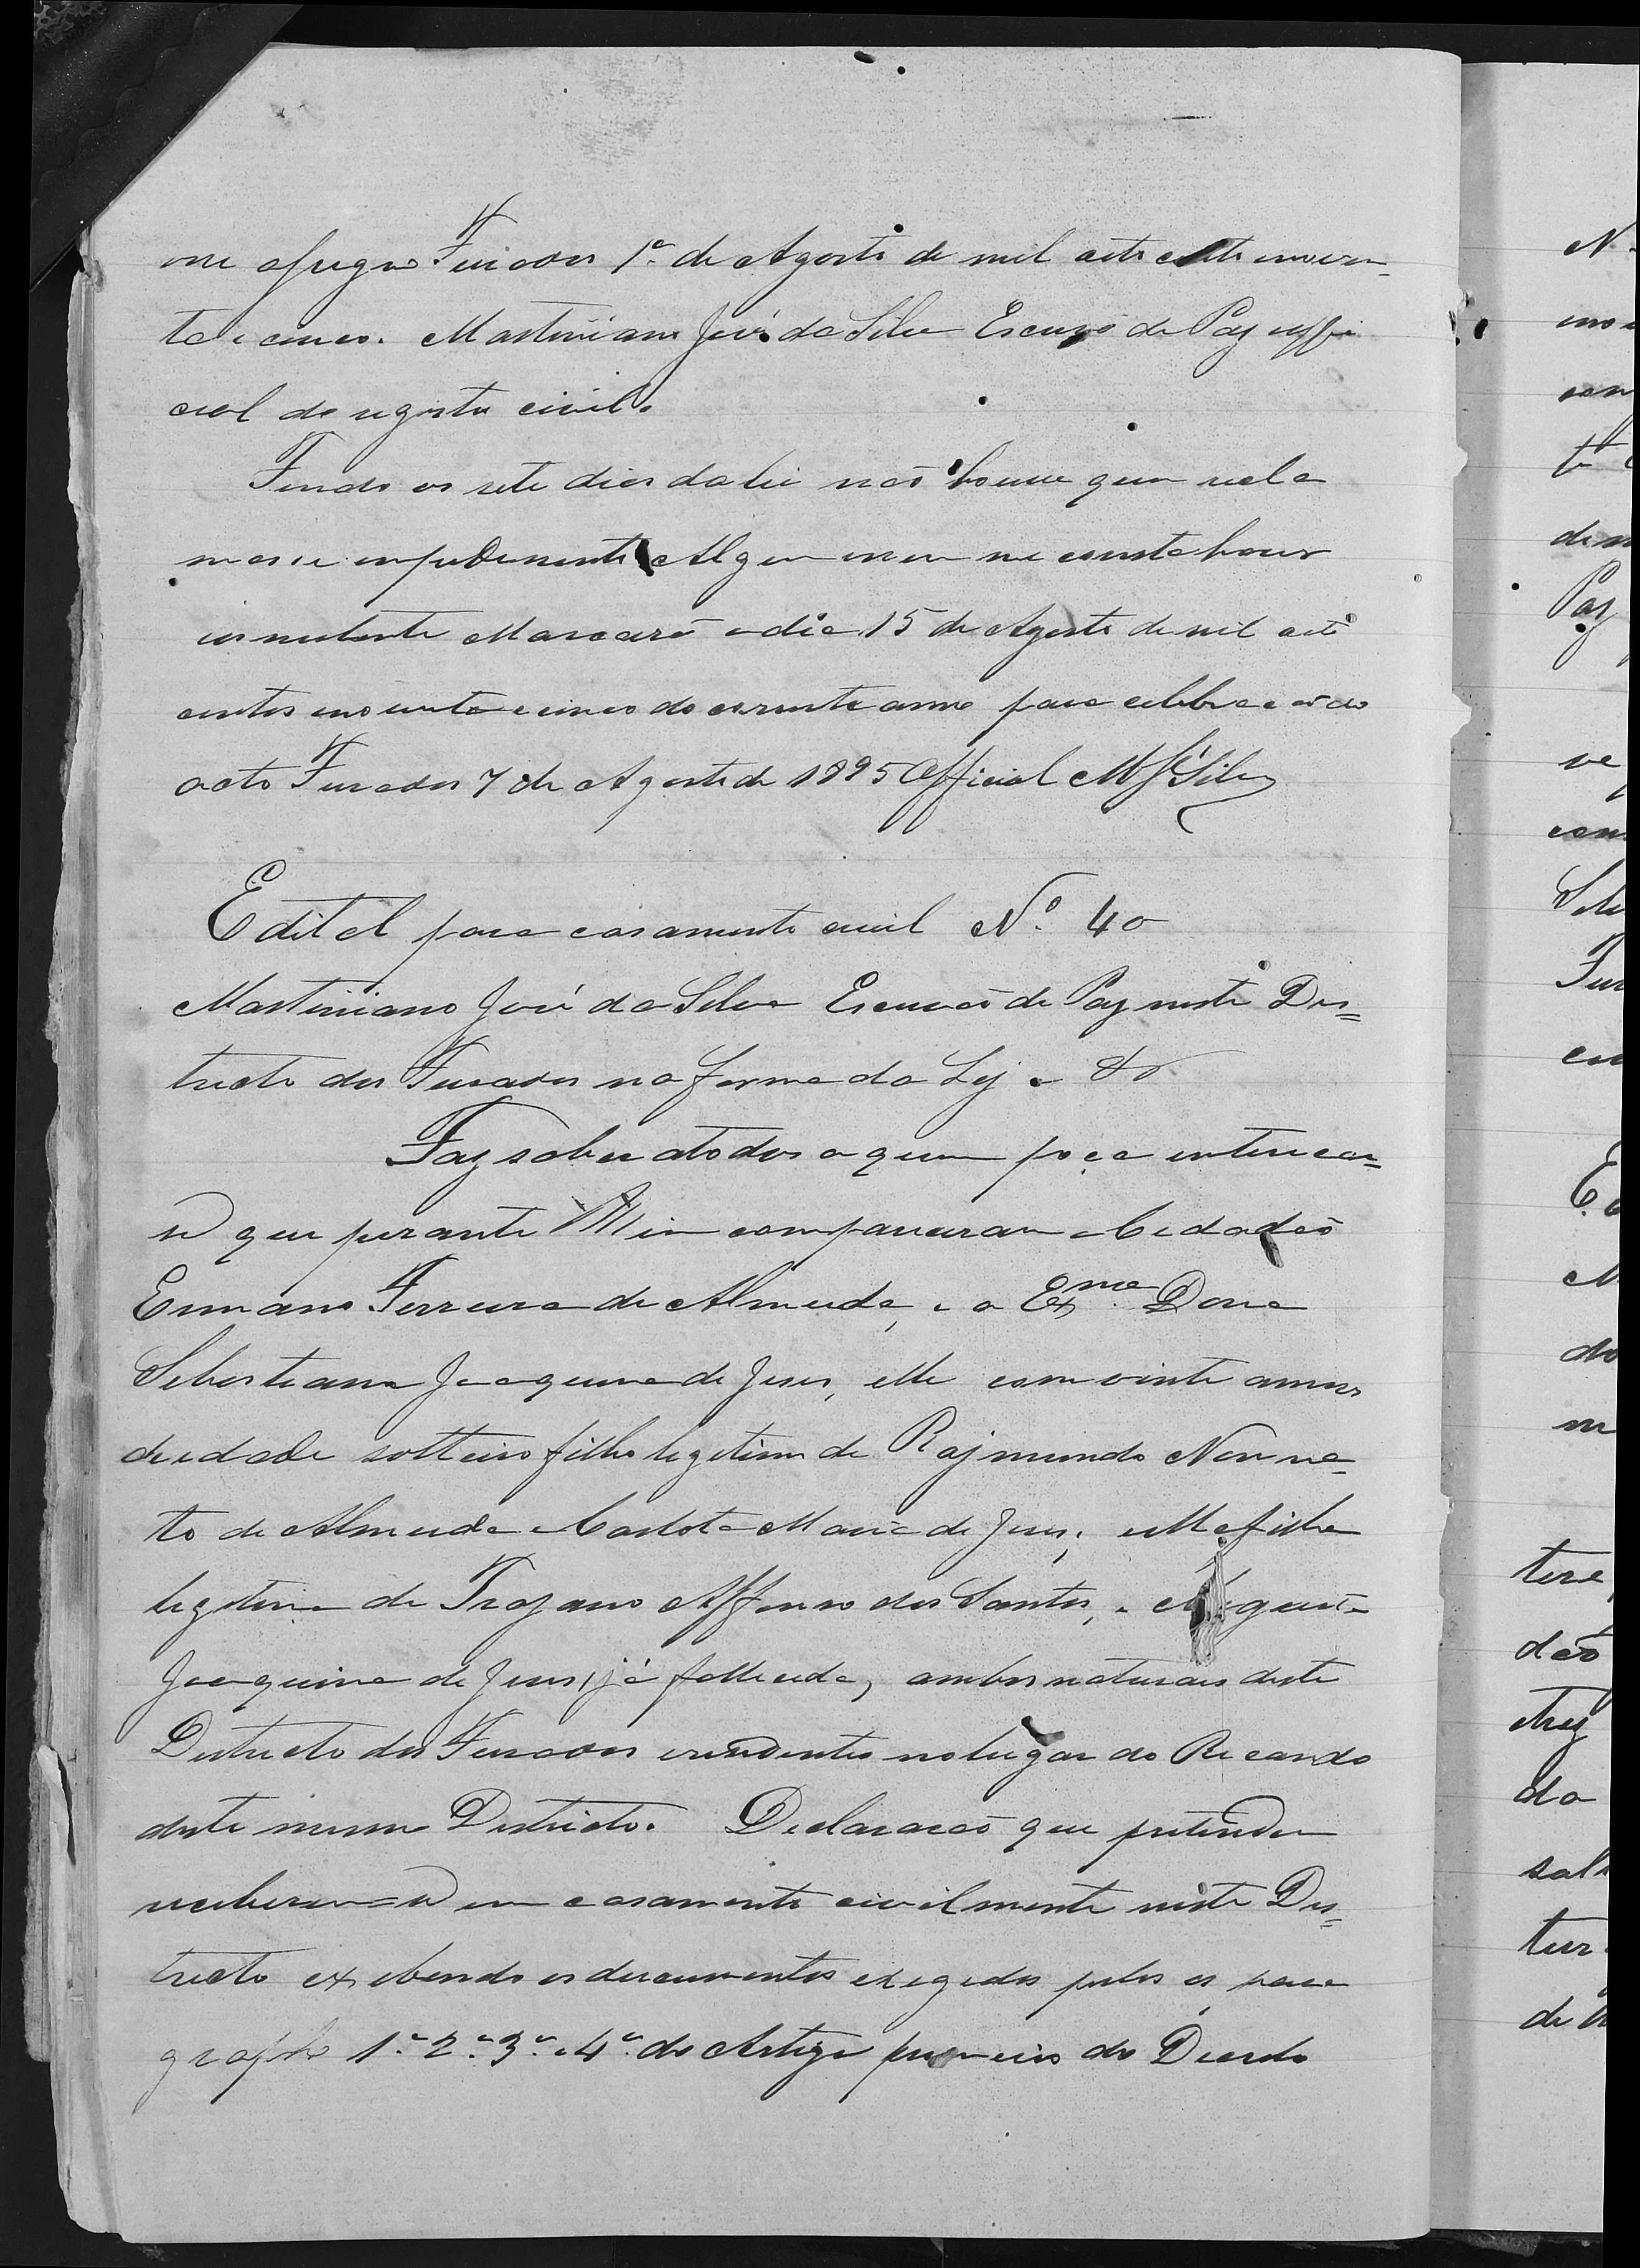 Furados 1º de Agosto de mil oito centos noven-
ta e cinco. Martiniano José da Silva Escrivaõ de Paz offi
cial do registo civil.
Findo os sete dias da lei naõ houve quem recla
masse impedimento Algum nem me consta haver
Marcaraõ o dia 15 de Agosto de mil oito
centos noventa e cinco do corrente anno para celebracaõ do
acto Furados 7 de Agosto de 1895 Official M J Silva
Edital para casamento civil Nº. 40
Martiniano José da Silva Escrivaõ de Paz neste Dis=
tricto dos Furados na forma da Ley e &
Faz saber a todos a quem poça enterecar=
se que perante Mim compareceram o Cidadaõ
Ermano Ferreira de Almeida, e a Exma. Dona
Sebastiana Joaquina de Jesus, elle com vinte annos
de edade solteiro filho legitimo de Rajmundo Nonna=
to de Almeida e Carlota Maria de Jesus; ella filha
legitima de Trajano Affonso dos Santos, e
Joaquina de Jesus, já fallecida, ambos naturais deste
Districto dos Furados residentes no lugar do Ricardo
deste mesmo Districto. Declaracaõ que pretendem
receberem=se em casamento civilmente neste Dis=
tricto exebendo os documentos exegidos pelos os para
grapho 1º 2º 3º e 4º do Artigo primeiro do Decreto